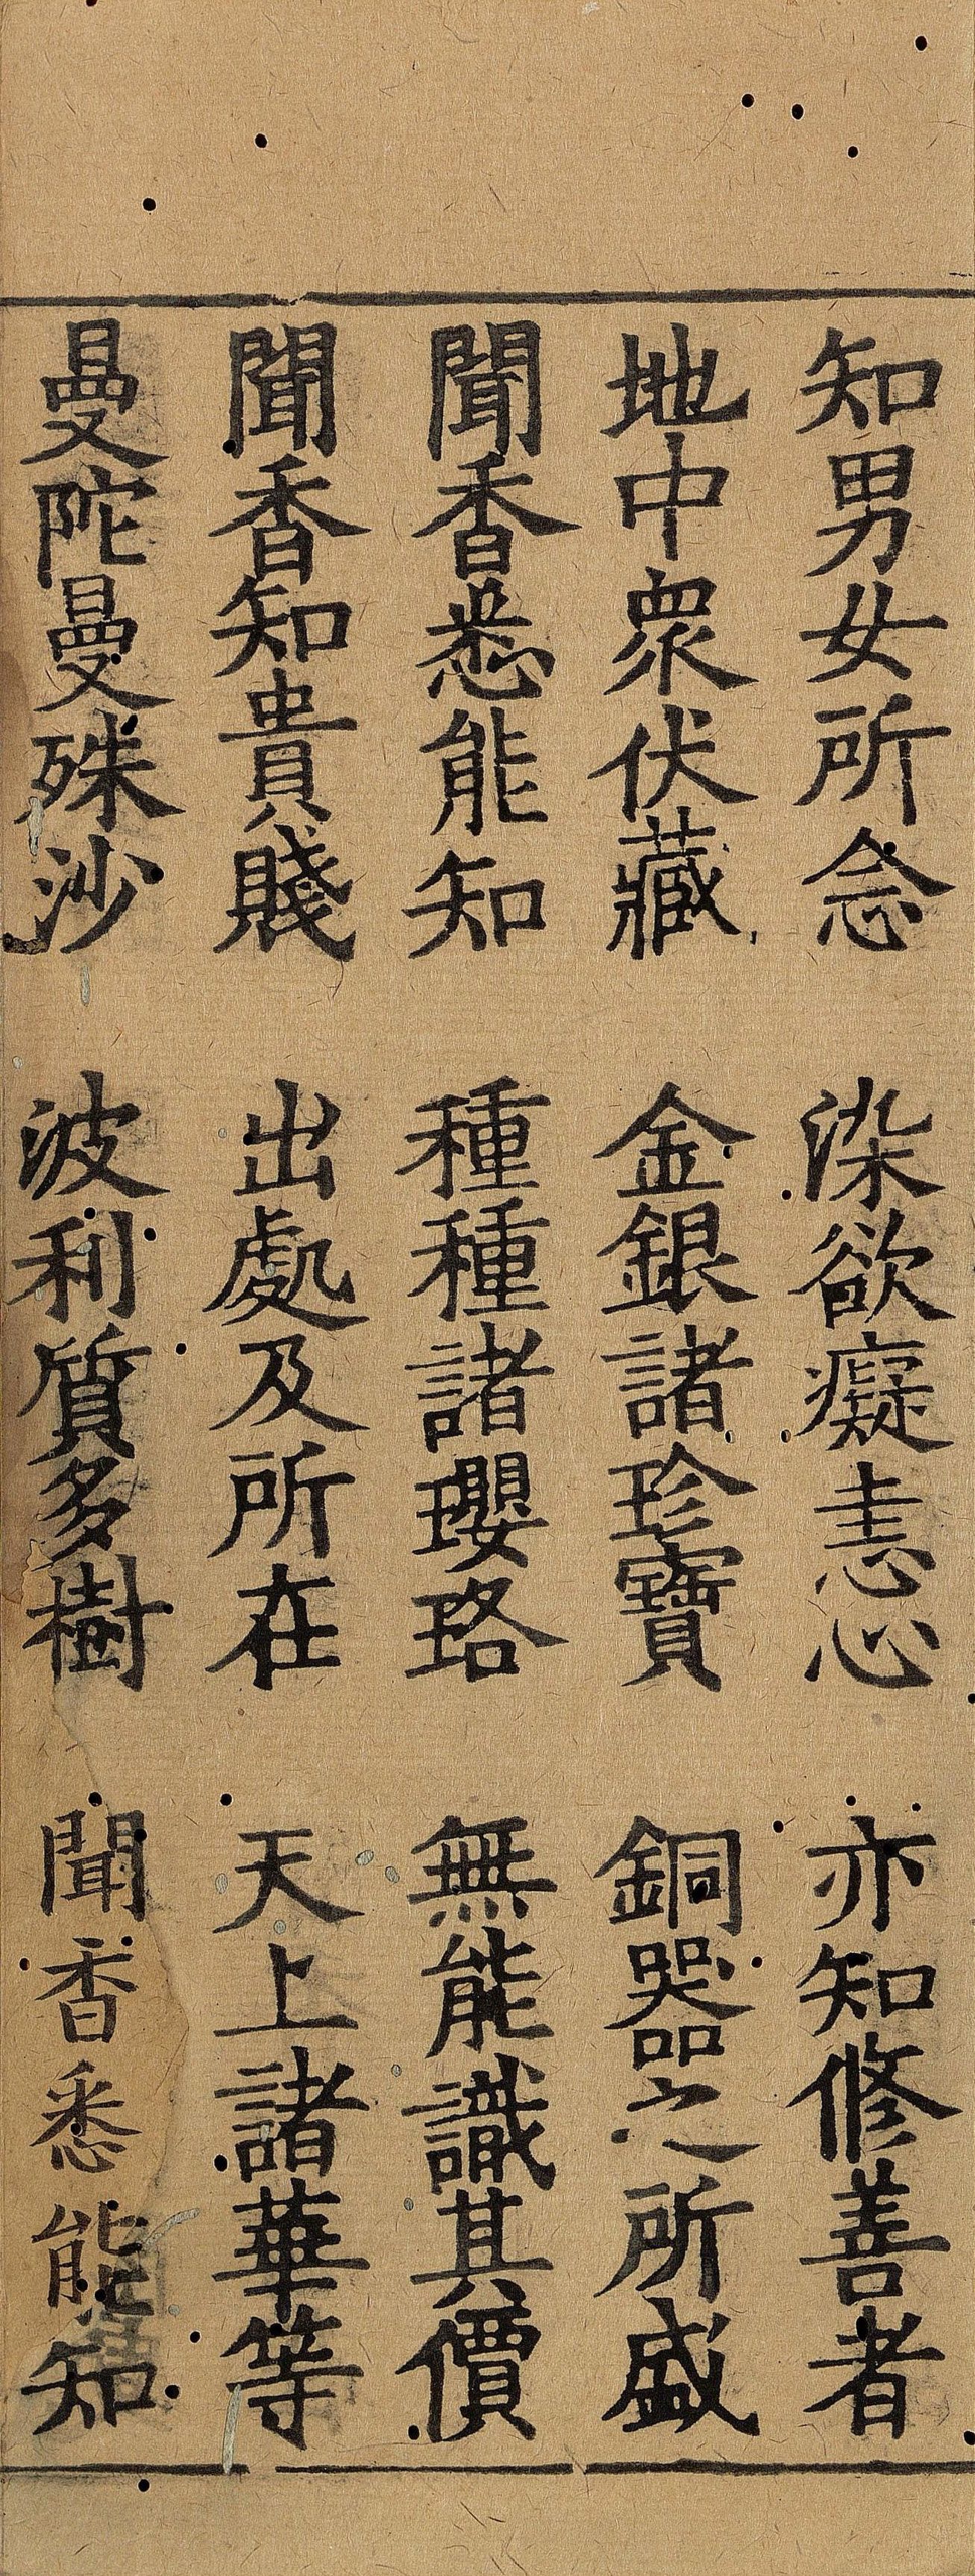 知男女所念　染欲癡恚心　亦知修善者
地中眾伏藏　金銀諸珍寶　銅器之所盛
聞香悉能知　種種諸瓔珞　無能識其價
聞香知貴賤　出處及所在　天上諸華等
曼陀曼殊沙　波利質多樹　聞香悉能知